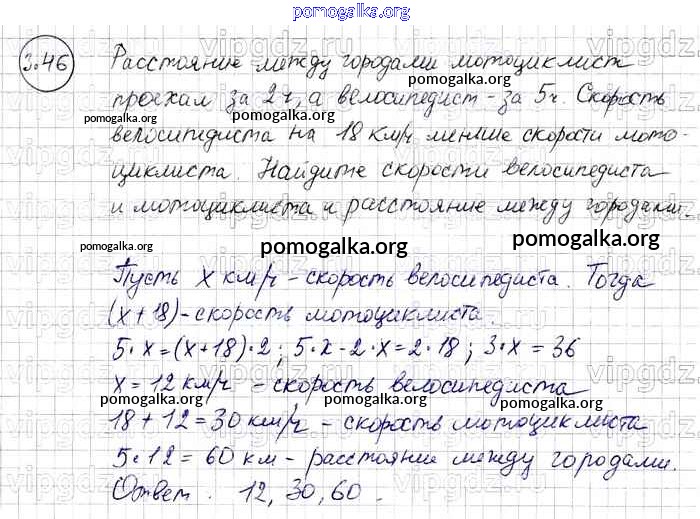 pomogalka.org
3.46 Расстояние между городами мотоциклист
pomogalka.org
проехал за 2 ч, а велосипедист - за 5 ч. Скорость
pomogalka.org pomogalka.org pomogalka.org
велосипедиста на 18 км/ч меньше скорости мото-
циклиста. Найдите скорости велосипедиста
и мотоциклиста и расстояние между городами.
pomogalka.org pomogalka.org pomogalka.org
Пусть x км/ч - скорость велосипедиста. Тогда
(x + 18) - скорость мотоциклиста.
5 · x = (x + 18) · 2 ; 5 · x - 2 · x = 2 · 18 ; 3 · x = 36
x = 12 км/ч - скорость велосипедиста
pomogalka.org pomogalka.org pomogalka.org
18 + 12 = 30 км/ч - скорость мотоциклиста
5 · 12 = 60 км - расстояние между городами.
Ответ. 12, 30, 60.